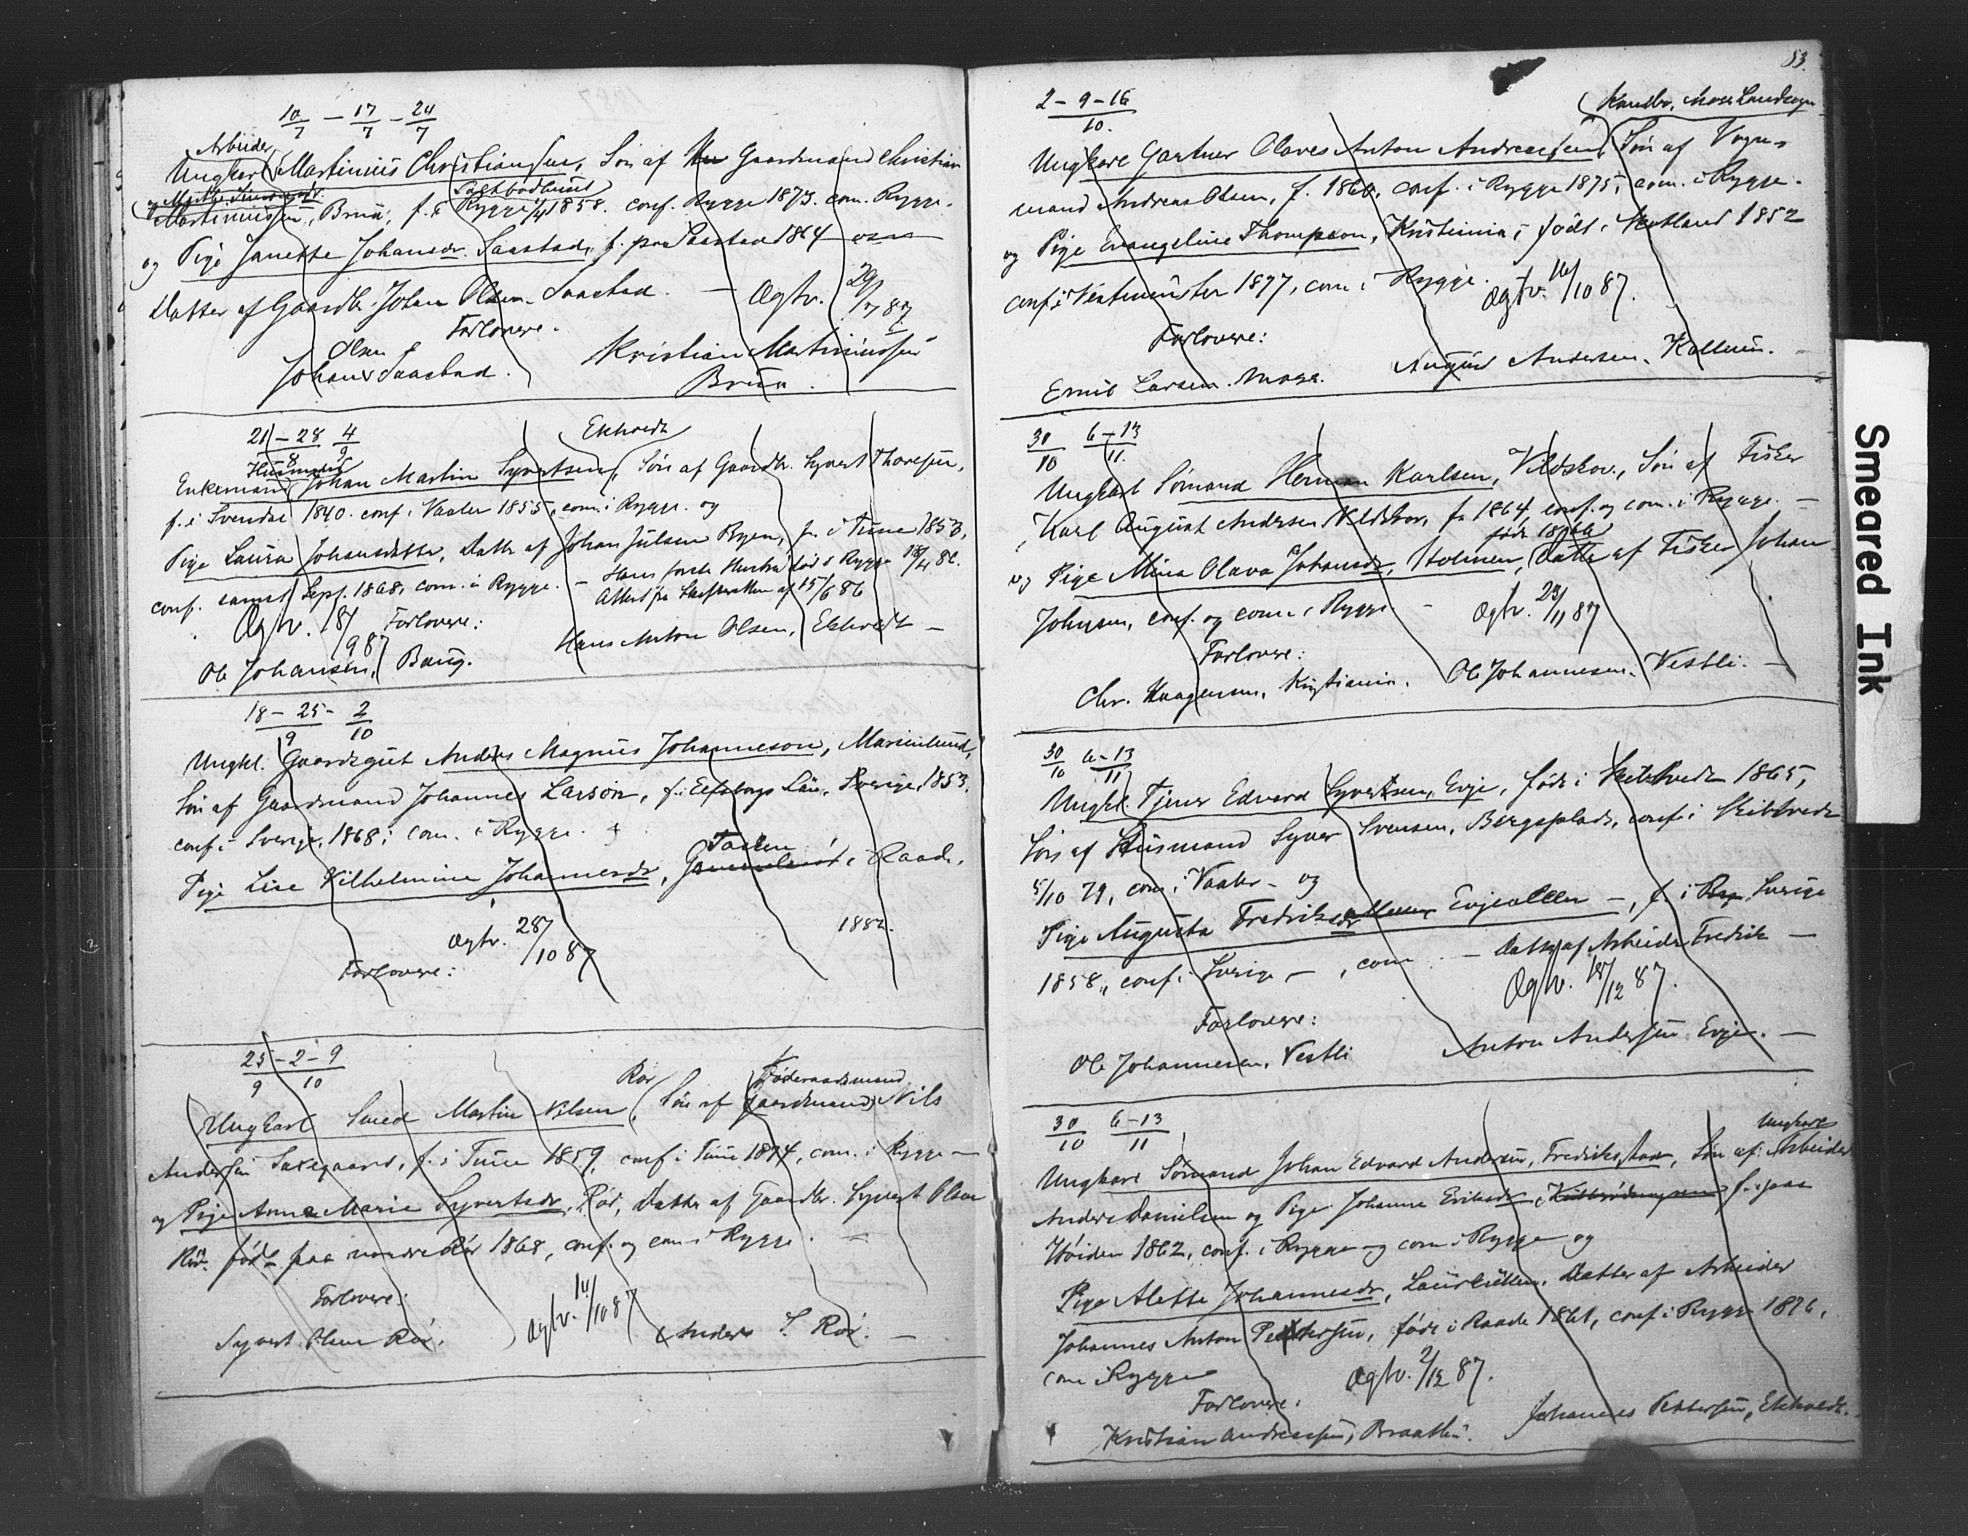 10/7 – 17/7 – 24/7
Arbeider
Ungkar Martinius Christiansen, Søn af Gaardmand Christian
Martiniussen, Bruu, f. i Rygge 1858. conf. Rygge 1873. com. Rygge.
og Pige Janette Johansdr. Saastad, f. paa Saastad 1864
Datter af Gaardbr. Johan Olsen Saastad. – Ægtv. 29/7 87
Forlovere.
Olsen
Johan Saastad. Kristian Martiniussen
Bruu.
21 – 28/8 4/9
Ekholdt
Husmand
Enkemand Johan Martin Syvertsen, Søn af Gaardbr. Syvert Thoresen,
f. i Svendal 1840. conf. i Vaaler 1855, com. i Rygge. og
Pige Laura Johansdatter, Datter af Johan Julsen Ryen, f. i Tune 1853,
conf. samst. Sept. 1868, com. i Rygge. – Hans forste Hustru død i Rygge 18/4 86.
Attest fra Skifteretten af 15/6 86
Ægtv. 18/9 87 Forlovere:
Hans Anton Olsen, Ekholdt –
Ole Johansen, Baug.
18 – 25/9 – 2/10
Ungkl. Gaardsgut Anders Magnus Johanneson, Marienlund,
Søn af Gaardmand Johannes Larson, f. i Elfsborgs Län, Sverige, 1853.
conf. i Sverige, 1868; com. i Rygge.
Pige Lise Vilhelmine Johannesdr, i Raade.
1882.
Ægtv. 28/10 87
Forlovere:
25/9 – 2 – 9/10
Rør Føderaadsmand
Ungkarl Smed Martin Nilsen, Søn af Gaardmand Nils
Andersen Saxegaard, f. i Tune 1859, conf. i Tune 1874, com. i Rygge –
og Pige Anna Marie Syvertsdr, Rør, Datter af Gaardbr. Syvert Olsen
Rør. født paa nordre Rør 1868, conf. og com i Rygge. –
Forlovere: Ægtv. 14/10 87
Syvert Olsen Rør. Anders S. Rør. –
53.
2 – 9 – 16/10. Kambo, Moss Landsogn
Ungkarl Gartner Olaves Anton Andreassen, Søn af Vogn-
mand Andreas Olsen, f. 1860, conf. i Rygge 1875, com. i Rygge.
og Pige Evangeline Thompson, Kristiania, født i Skotland 1852
conf. i Vestminster 1877, com i Rygge. Ægtv. 16/10 87.
Forlovere:
Emil Larsen. Moss. August Andersen. Kollum. –
30/10 6 – 13/11.
Ungkarl Sømand Herman Karlsen, Vildskov, Søn af Fisker
Karl August Andersen Vildskov, f. 1864, conf. og com. i Rygge. –
født 1866
og Pige Mina Olava Johansdr, Holmen, Datter af Fisker Johan
Johnsen, conf. og com i Rygge – Ægtv. 23/11 87
Forlovere:
Chr. Haagensen, Kristiania. Ole Johannesen. Vestli. –
30/10 6 – 13/11
Ungkl. Tjener Edvard Syvertsen, Evje, født i Skibtvedt 1865,
Søn af Husmand Syver Svensen, Bergsplads, conf. i Skibtvedt
5/10 79, com. i Vaaler – og
Pige Augusta Fredriksdr Evjeallen –, f. i Sverige
1858, conf. i Sverige –, com – Datter af Arbeider Fredrik –
Ægtv. 18/12 87.
Forlovere:
Ole Johannesen, Vestli Anton Andersen Evje. –
30/10 6 – 13/11
Ungkarl
Ungkarl Sømand Johan Edvard Andersen, Fredriksstad, Søn af Arbeider
Anders Danielsen og Pige Johanne Eriksdr f. paa
Høiden 1862, conf. i Rygge og com i Rygge og
Pige Alette Johannesdr, Laurkullen, Datter af Arbeider
Johannes Anton Pettersen, født i Raade 1861, conf. i Rygge 1876,
com i Rygge Ægtv. 2/12 87.
Forlovere:
Kristian Andreassen, Braathen. Johannes Pettersen, Ekholdt.
Smeared Ink